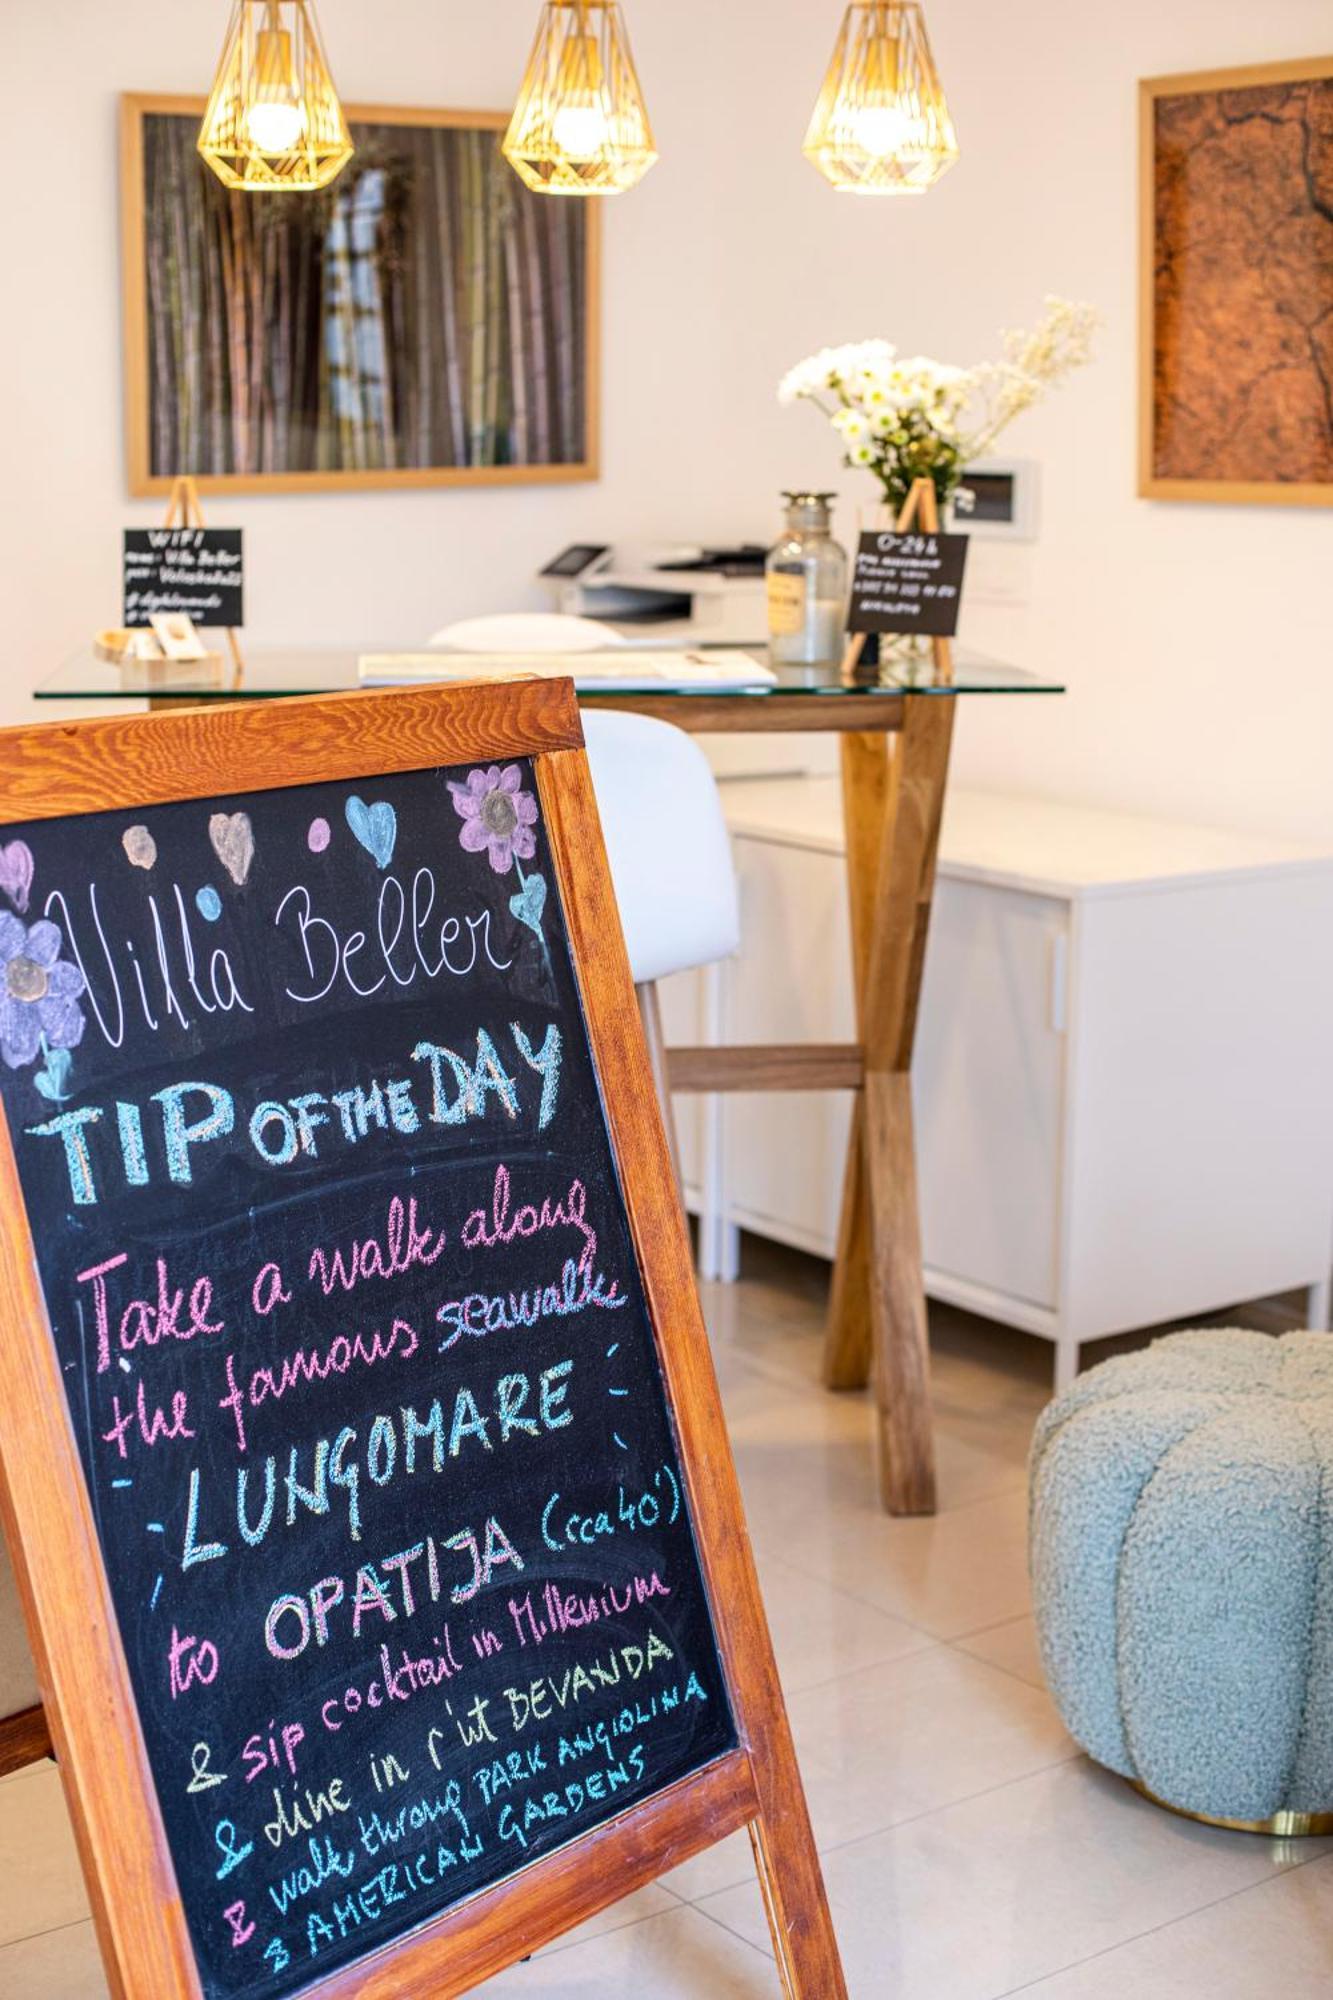 WIFI
Villa Beller
0-24h
Villa Beller
TIP OF THE DAY
Take a walk along
the famous seawalk
LUNGOMARE
to OPATIJA (cca 40')
& sip cocktail in Millenium
& dine in r'ut BEVANDA
& walk throug PARK ANGIOLINA
& AMERICAN GARDENS